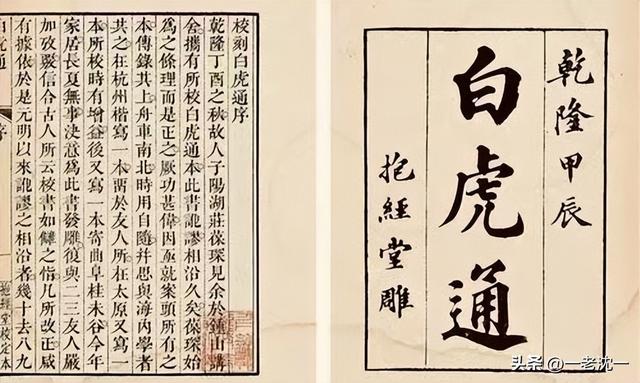 乾隆甲辰
白虎通
抱經堂雕
校刻白虎通序
乾隆丁酉之秋故人子陽湖莊葆琛見余於鍾山講
舍攜有所校白虎通本此書譌謬相沿久矣葆琛始
爲之條理而是正之厥功甚偉因亟就案頭所有之
本傳錄其上舟車南北時用自隨并思與海內學者
共之在杭州楷寫一本畱於友人所在太原又寫一
本所校時有增益後又寫一本寄曲阜桂未谷今年
家居長夏無事決意爲此書發雕復與二三友人嚴
加攷覈信合古人所云校書如讎之恉凡所改正咸
有據依於是元明以來譌謬之相沿者幾十去八九
白虎通
序
抱經堂校定本
头条 @一老沈一